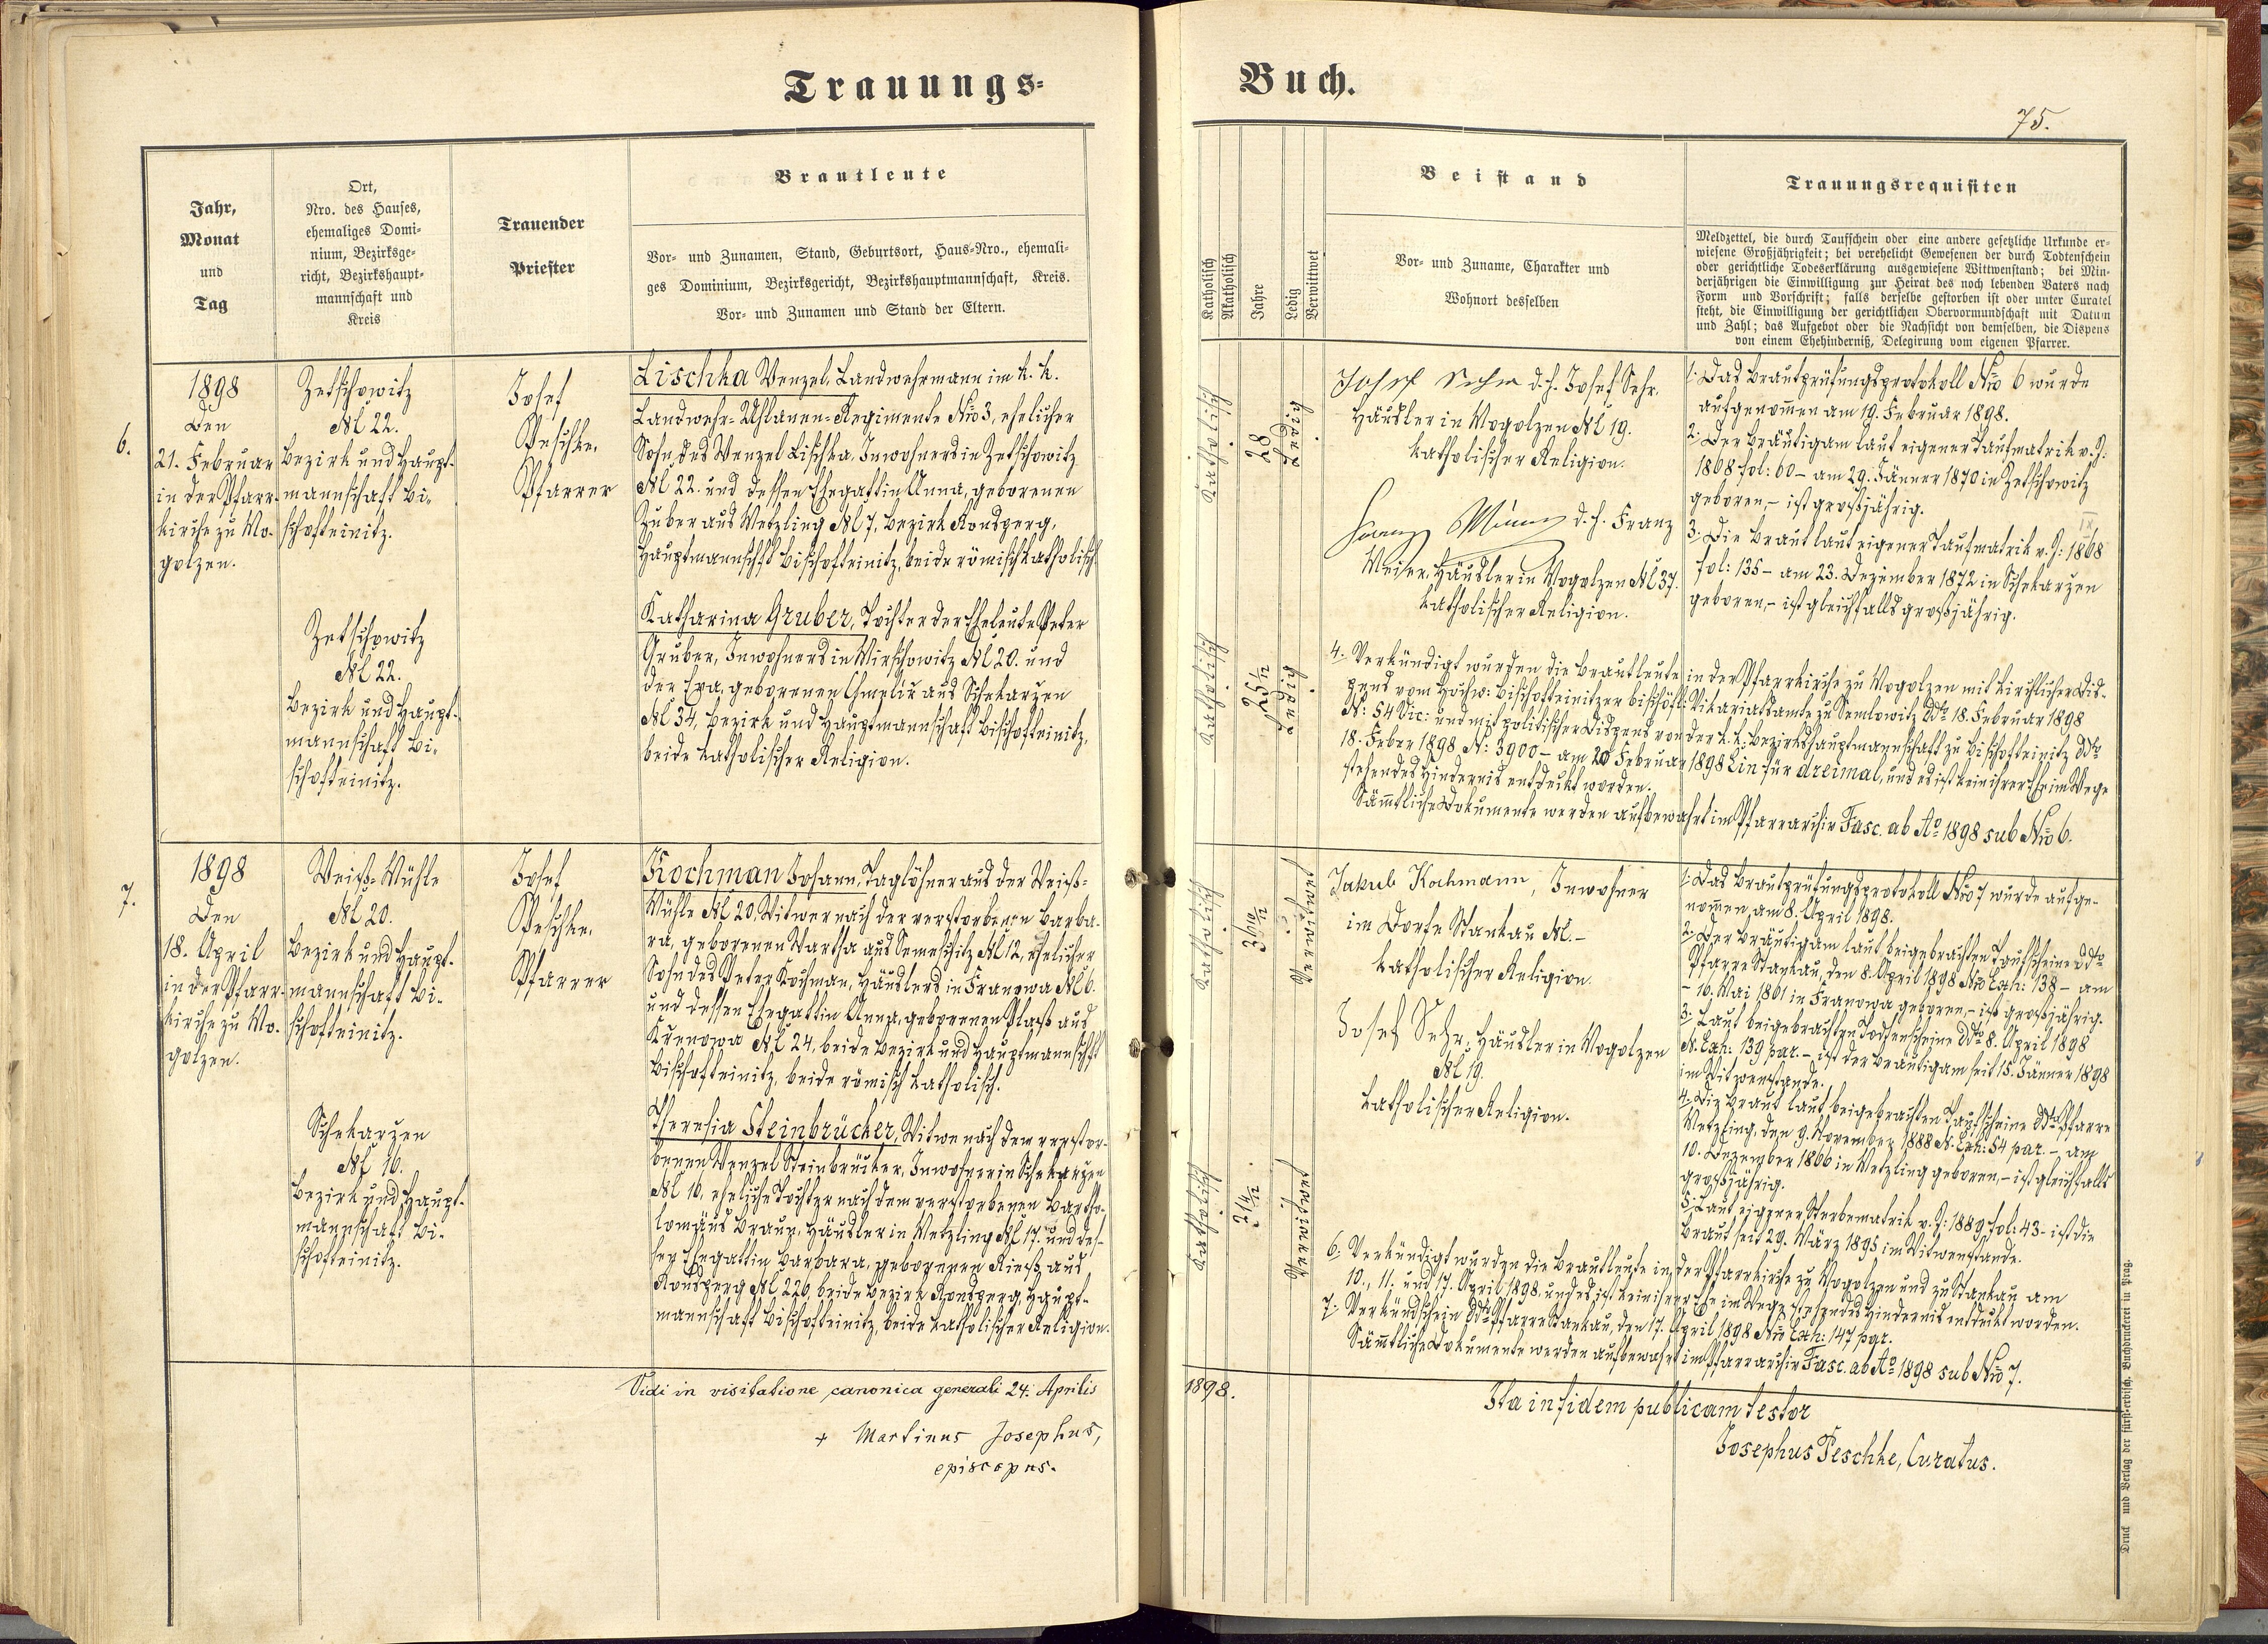 Trauungs-
Buch.
75.
Jahr,
Monat
und
Tag
Ort,
Nro. des Hauses,
ehemaliges Domi-
nium, Bezirksge-
richt, Bezirkshaupt-
mannschaft und
Kreis
Trauender
Priester
Brautleute
Vor- und Zunamen, Stand, Geburtsort, Haus-Nro., ehemali-
ges Dominium, Bezirksgericht, Bezirkshauptmannschaft, Kreis.
Vor- und Zunamen und Stand der Eltern.
Katholisch
Akatholisch
Jahre
Ledig
Verwittwet
Beistand
Vor- und Zuname, Charakter und
Wohnort desselben
Trauungsrequisiten
Meldzettel, die durch Taufschein oder eine andere gesetzliche Urkunde er-
wiesene Großjährigkeit; bei verehelicht Gewesenen der durch Todtenschein
oder gerichtliche Todeserklärung ausgewiesene Wittwenstand; bei Min-
derjährigen die Einwilligung zur Heirat des noch lebenden Vaters nach
Form und Vorschrift; falls derselbe gestorben ist oder unter Curatel
steht, die Einwilligung der gerichtlichen Obervormundschaft mit Datum
und Zahl; das Aufgebot oder die Nachsicht von demselben, die Dispens
von einem Ehehinderniß, Delegirung vom eigenen Pfarrer.
6.
1898
Den
21. Februar
in der Pfarr-
kirche zu Mo-
golzen.
Zetschowitz
N. C. 22.
Bezirk und Haupt-
mannschaft Bi-
schofteinitz.
Zetschowitz
N. C. 22.
Bezirk und Haupt-
mannschaft Bi-
schofteinitz.
Josef
Peschke,
Pfarrer
Lischka Wenzel, Landwehrmann im k. k.
Landwehr-Uhlanen-Regimente Nro 3, ehelicher
Sohn des Wenzel Lischka, Inwohners in Zetschowitz
N. C. 22. und dessen Ehegattin Anna, geborenen
Zuber aus Metzling N. C. 7, Bezirk Ronsperg,
Hauptmannschft Bischofteinitz, beide römisch katholisch.
Katharina Gruber, Tochter der Eheleute Peter
Gruber, Inwohners in Mirschowitz N. C. 20. und
der Eva, geborenen Chmelir aus Schekarzen
N. C. 34, Bezirk und Hauptmannschaft Bischofteinitz,
beide katholischer Religion.
Katholisch
28
Ledig
Katholisch
25 1/12
Ledig
Josef Sehr d. h. Josef Sehr,
Häusler in Mogolzen N. C. 19.
katholischer Religion.
Franz d. h. Franz
Meier, Häusler in Mogolzen N. C. 37.
katholischer Religion.
1. Das Brautprüfungsprotokoll Nro 6 wurde
aufgenommen am 19. Februar 1898.
2. Der Bräutigam laut eigener Taufmatrik v. J:
1868 fol: 60 - am 29. Jänner 1870 in Zetschowitz
geboren, - ist großjährig.
3. Die Braut laut eigener Taufmatrik v. J: 1868
fol: 135 - am 23. Dezember 1872 in Schekarzen
geboren, - ist gleichfalls großjährig.
4. Verkündigt wurden die Brautleute in der Pfarrkirche zu Mogolzen mit kirchlicher Dis-
pens vom Hochw: Bischofteinitzer bischöfl: Vikariatsamte zu Semlowitz ddto 18. Februar 1898
N: 54 Vic: und mit politischer Dispens von der k. k. Bezirkshauptmannschaft zu Bischofteinitz ddto
18. Feber 1898 N: 3900 - am 20 Februar 1898 Ein für dreimal, und es ist kein ihrer Ehe im Wege
stehendes Hindernis entdeckt worden.
Sämmtliche Dokumente werden aufbewahrt im Pfarrarchiv Fasc. ab Ao 1898 sub Nro 6.
7.
1898
Den
18. April
in der Pfarr-
kirche zu Mo-
golzen.
Weiß-Mühle
N. C. 20.
Bezirk und Haupt-
mannschaft Bi-
schofteinitz.
Schekarzen
N. C. 16.
Bezirk und Haupt-
mannschaft Bi-
schofteinitz.
Josef
Peschke,
Pfarrer
Kochman Johann, Taglöhner aus der Weiß-
Mühle N. C. 20, Witwer nach der verstorbenen Barba-
ra, geborenen Wartha aus Semeschitz N. C. 12, ehelicher
Sohn des Peter Kochman, Häuslers in Franowa N. C. 6.
und dessen Ehegattin Anna, geborenen Plaß aus
Krenowa N. C. 24, beide Bezirk und Hauptmannschft
Bischofteinitz, beide römisch katholisch.
Theresia Steinbrücker, Witwe nach dem verstor-
benen Wenzel Steinbrücker, Inwohner in Schekarzen
N. C. 16, eheliche Tochter nach dem verstorbenen Bartho-
lomäus Braun, Häusler in Metzling N. C. 17. und des-
sen Ehegattin Barbara, geborenen Rieß aus
Ronsperg N. C. 226, beide Bezirk Ronsperg, Haupt-
mannschaft Bischofteinitz, beide katholischer Religion.
Katholisch
36 10/12
Verwitwet
Katholisch
Verwitwet
Jakub Kochmann, Inwohner
im Dorfe Stankau N. C. -
katholischer Religion.
Josef Sehr, Häusler in Mogolzen
N. C. 19.
katholischer Religion.
1. Das Brautprüfungsprotokoll Nro 7 wurde aufge-
nommen am 8. April 1898.
2. Der Bräutigam laut beigebrachten Taufscheine ddto
Pfarre Stankau, den 8. April 1898 Nro Exh: 138 - am
- 16. Mai 1861 in Franowa geboren, - ist großjährig.
3. Laut beigebrachten Todtenscheine ddto 8. April 1898
N. Exh: 139 par. - ist der Bräutigam seit 15. Jänner 1898
im Witwenstande.
4. Die Braut laut beigebrachten Taufscheine ddto Pfarre
Metzling, den 9. November 1888 N. Exh: 54 par. - am
10. Dezember 1866 in Metzling geboren, - ist gleichfalls
großjährig.
5. Laut eigener Sterbematrik v. J: 1889 fol: 43 - ist die
Braut seit 29. März 1895 im Witwenstande.
6. Verkündigt wurden die Brautleute in der Pfarrkirche zu Mogolzen und zu Stankau am
10., 11. und 17. April 1898, und es ist kein ihrer Ehe im Wege stehendes Hindernis entdeckt worden.
7. Verkündschein ddto Pfarre Stankau, den 17. April 1898 Nro Exh: 147 par.
Sämmtliche Dokumente werden aufbewahrt im Pfarrarchiv Fasc. ab Ao 1898 sub Nro 7.
Vidi in visitatione canonica generali 24. Aprilis 1898.
+ Martinus Josephus,
episcopus.
Ita in fidem publicam testor
Josephus Peschke, Curatus.
Druck und Verlag der fürst-erzbisch. Buchdruckerei in Prag.